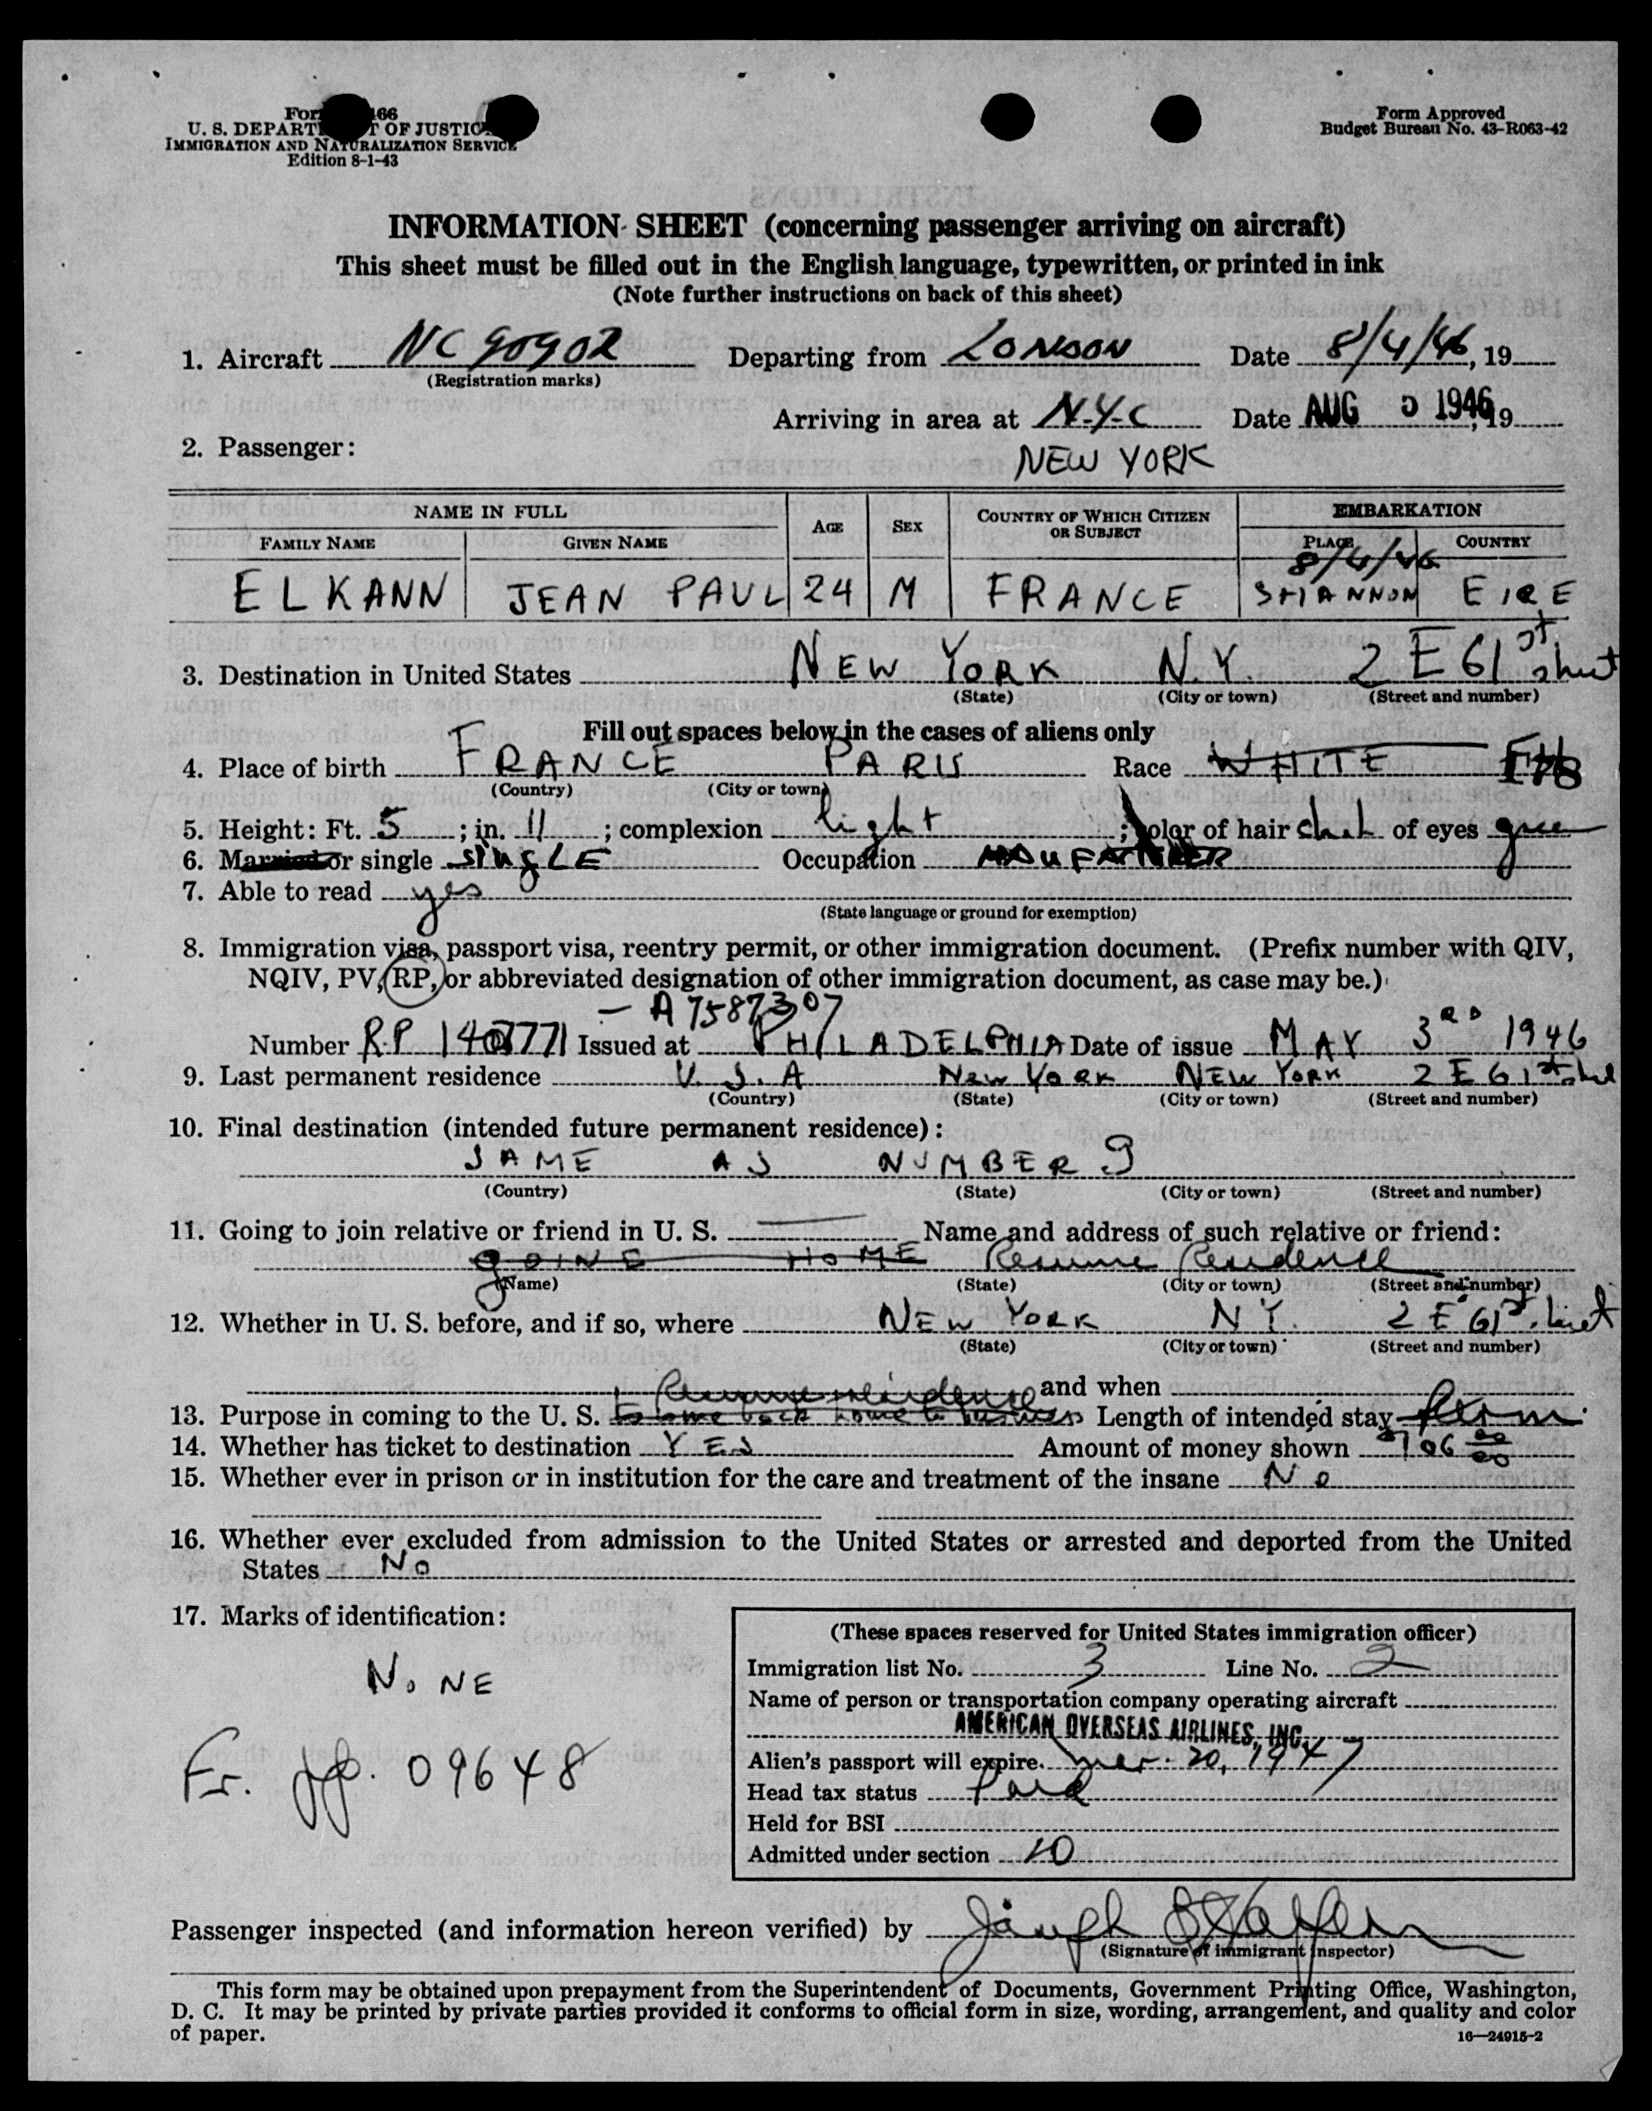 Form 466
U. S. DEPARTMENT OF JUSTICE
IMMIGRATION AND NATURALIZATION SERVICE
Edition 8-1-43
Form Approved
Budget Bureau No. 43-R063-42
INFORMATION SHEET (concerning passenger arriving on aircraft)
This sheet must be filled out in the English language, typewritten, or printed in ink
(Note further instructions on back of this sheet)
1. Aircraft NC 90902 Departing from LONDON Date 8/4/46, 19
(Registration marks)
Arriving in area at N-Y-C Date AUG 5 1946, 19
2. Passenger: NEW YORK
NAME IN FULL AGE SEX COUNTRY OF WHICH CITIZEN OR SUBJECT EMBARKATION
FAMILY NAME GIVEN NAME PLACE COUNTRY
8/4/46
ELKANN JEAN PAUL 24 M FRANCE SHANNON EIRE
3. Destination in United States NEW YORK N.Y. 2 E 61st street
(State) (City or town) (Street and number)
Fill out spaces below in the cases of aliens only
4. Place of birth FRANCE PARIS Race WHITE
(Country) (City or town)
5. Height: Ft. 5; in. 11; complexion light; color of hair chat. of eyes green
6. Married or single SINGLE Occupation
7. Able to read yes
(State language or ground for exemption)
8. Immigration visa, passport visa, reentry permit, or other immigration document. (Prefix number with QIV,
NQIV, PV, RP, or abbreviated designation of other immigration document, as case may be.)
— A 7587307
Number RP 1407771 Issued at PHILADELPHIA Date of issue MAY 3RD 1946
9. Last permanent residence U.S.A New York NEW YORK 2 E 61st street
(Country) (State) (City or town) (Street and number)
10. Final destination (intended future permanent residence):
SAME AS NUMBER 9
(Country) (State) (City or town) (Street and number)
11. Going to join relative or friend in U. S. Name and address of such relative or friend:
GOING HOME Resume Residence
(Name) (State) (City or town) (Street and number)
12. Whether in U. S. before, and if so, where NEW YORK N Y. 2 E 61st street
(State) (City or town) (Street and number)
Resume residence and when
13. Purpose in coming to the U. S. to come back home to business Length of intended stay Perm.
14. Whether has ticket to destination YES Amount of money shown $106 00/00
15. Whether ever in prison or in institution for the care and treatment of the insane No
16. Whether ever excluded from admission to the United States or arrested and deported from the United
States No
17. Marks of identification:
NONE
Fr. pp. 09648
(These spaces reserved for United States immigration officer)
Immigration list No. 3 Line No. 2
Name of person or transportation company operating aircraft
AMERICAN OVERSEAS AIRLINES, INC.
Alien's passport will expire Mar. 20, 1947
Head tax status Paid
Held for BSI
Admitted under section 10
Passenger inspected (and information hereon verified) by Joseph
(Signature of immigrant inspector)
This form may be obtained upon prepayment from the Superintendent of Documents, Government Printing Office, Washington,
D. C. It may be printed by private parties provided it conforms to official form in size, wording, arrangement, and quality and color
of paper.
16—24915-2